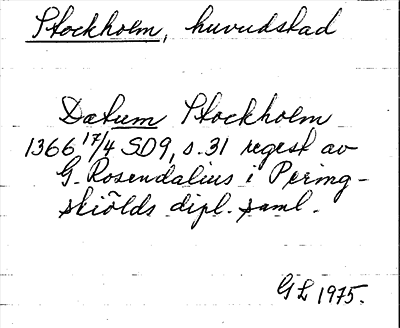 Stockholm, huvudstad
Datum Stockholm
1366 17/4 SD9, s. 31 regest av
G. Rosendalius i Pering-
skiölds dipl. saml.
G L 1975.